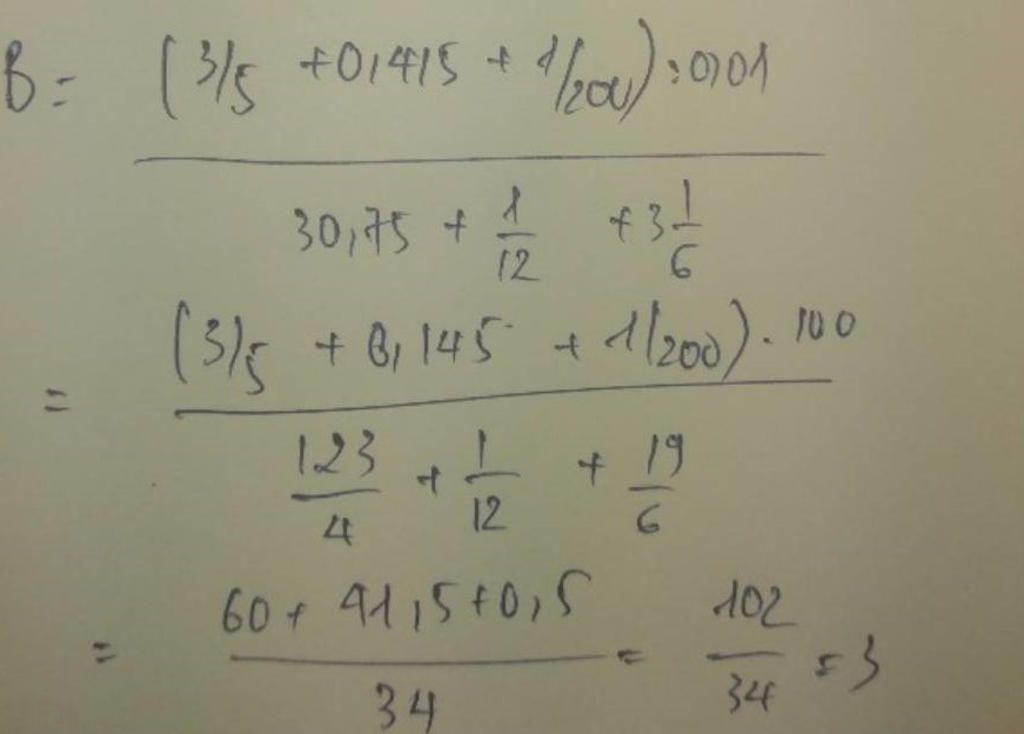 B = (3/5 + 0,415 + 1/200) : 0,01
30,75 + 1/12 + 3 1/6
= (3/5 + 0,145 + 1/200) . 100
123/4 + 1/12 + 19/6
= 60 + 41,5 + 0,5 / 34 = 102/34 = 3